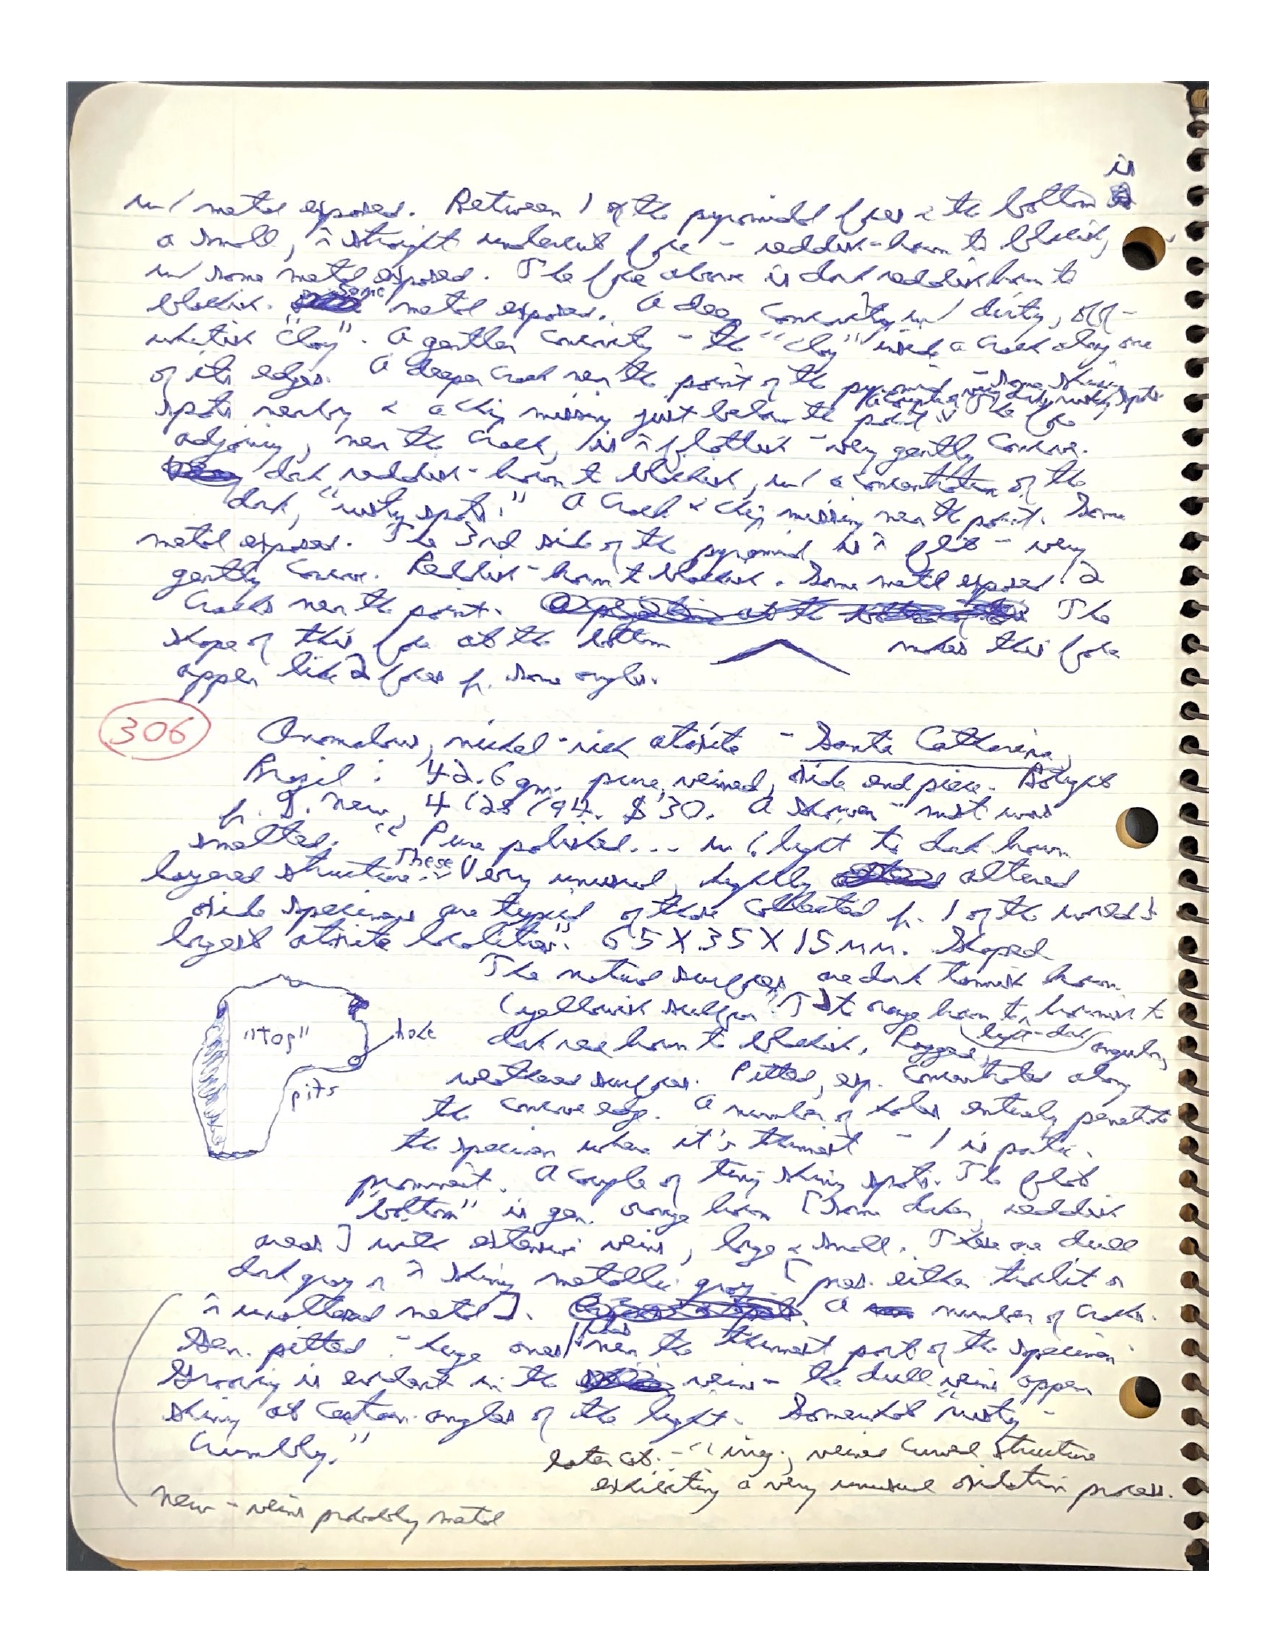 is
w/ metal exposed. Between 1 of the pyramidal faces & the bottom
a small, ~ straight undercut face - reddish-brown to blackish,
w/ some metal exposed. The face above is dark reddish brown to
blackish. Some metal exposed. A deep concavity w/ dirty, off-
whitish "clay". A gentler concavity - the "clay" inside a crack along one
of its edges. A deeper crack near the point of the pyramid - some shiny
spots nearby & a chip missing just below the point. The face
adjoining, near the crack, is ~ flattish - very gently concave.
dark reddish-brown to blackish, w/ a concentration of the
dark, "rusty spots." A crack & chip missing near the point. Some
metal exposed. The 3rd side of the pyramid is ~ flat - very
gently concave. Reddish-brown to blackish. Some metal exposed. 2
cracks near the point. The
shape of this face at the bottom makes this face
appear like 2 faces f. some angles.
306
Anomalous, nickel-rich ataxite - Santa Catharina,
Brazil: 42.6 gm. pure, veined, oxide end piece. Bought
f. D. New, 4/28/94. $30. A shower - most was
smelted. "Pure polished... w/ light to dark brown
layered structure... These very unusual, highly altered
oxide specimens are typical of those collected f. 1 of the world's
largest ataxite localities". 65 X 35 X 15 mm. Shaped
The natural surfaces are dark brownish brown
(yellowish orange brown to brownish to
light-dark
dark rose brown to blackish. Rugged, angular,
weathered surfaces. Pitted, esp. concentrated along
"top"
hole
pits
the concave edge. A number of holes entirely penetrate
the specimen where it's thinnest - 1 is partic.
prominent. A couple of tiny shiny spots. The flat
"bottom" is gen. orange brown [some darker, reddish
areas] with extensive veins, large & small. These are dull
dark gray or ~ shiny metallic gray [pres. either
~ unaltered metal]. A number of cracks.
Gen. pitted - large ones near the thinnest part of the specimen.
is evident in the veins - the dull veins appear
shiny at certain angles of the light. Somewhat "rusty -
crumbly."
later cat. - "; veined curved structure
exhibiting a very unusual oxidation process.
new - veins probably metal